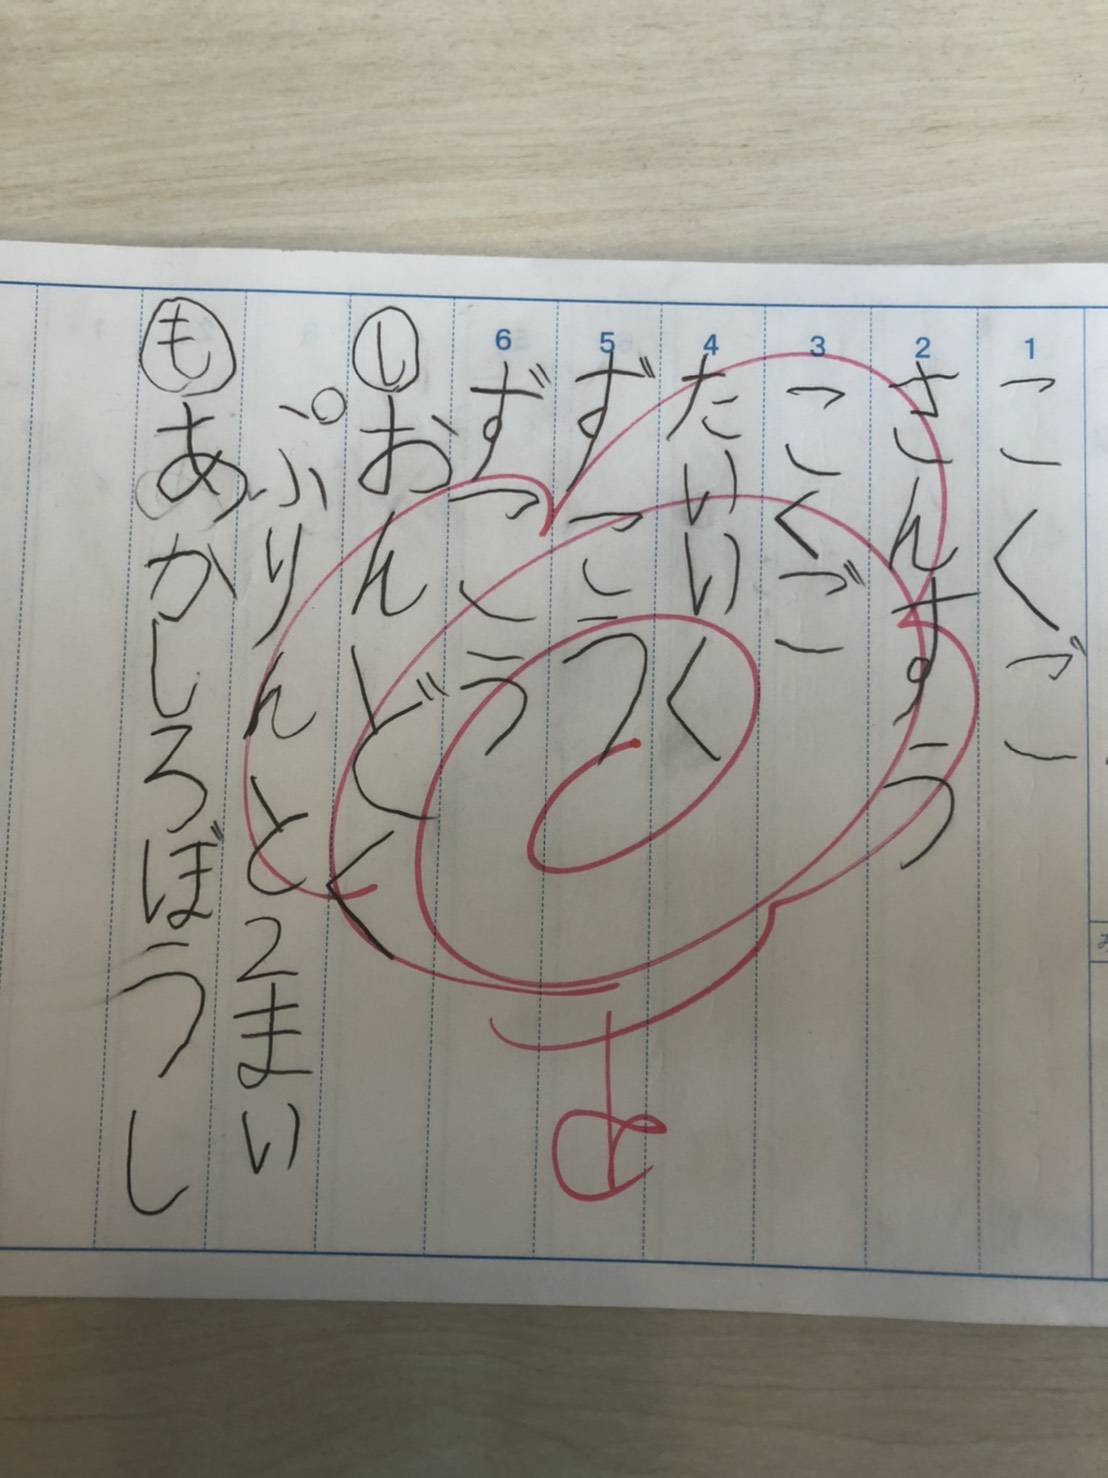 1 こくご
2 さんすう
3 こくご
4 たいいく
5 ずこう
6 ずこう
し おんどく
ぷりんと2まい
も あかしろぼうし